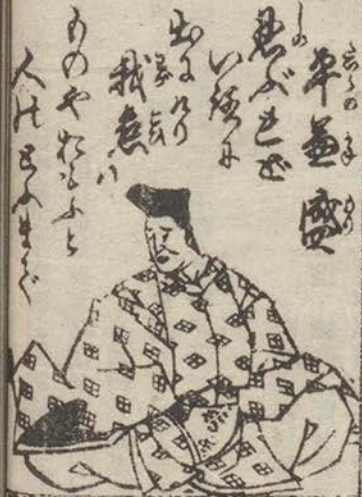 平兼盛
忍ぶれど
いろに
出にけり
我恋ハ
ものやおもふと
人のとふまで